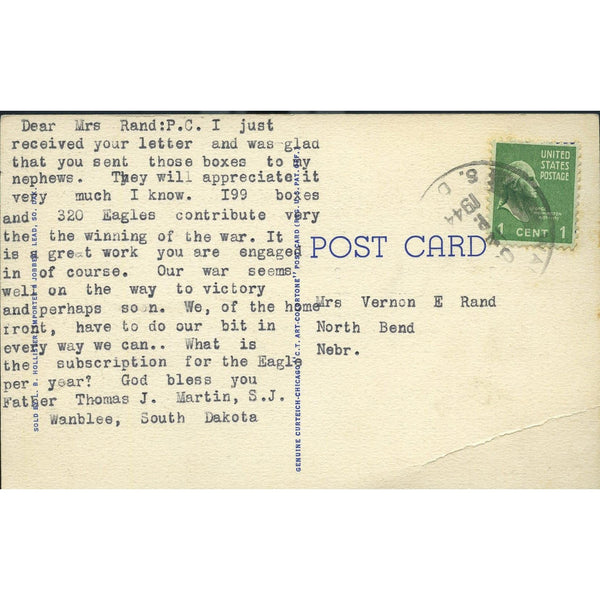 Dear Mrs Rand:P.C. I just
received your letter and was glad
that you sent those boxes to my
nephews. They will appreciate it
very much I know. I99 boxes
and 320 Eagles contribute very
the the winning of the war. It
is a great work you are engaged
in of course. Our war seems
well on the way to victory
and perhaps soon. We, of the home
front, have to do our bit in
every way we can.. What is
the subscription for the Eagle
per year? God bless you
Father Thomas J. Martin, S.J.
Wanblee, South Dakota
POST CARD
Mrs Vernon E Rand
North Bend
Nebr.
UNITED
STATES
POSTAGE
1 CENT 1
1944
S. D.
GENUINE CURTEICH-CHICAGO "C.T. ART-COLORTONE" POST CARD (REG. U.S. PAT. OFF.)
LEAD, SO. DAK.